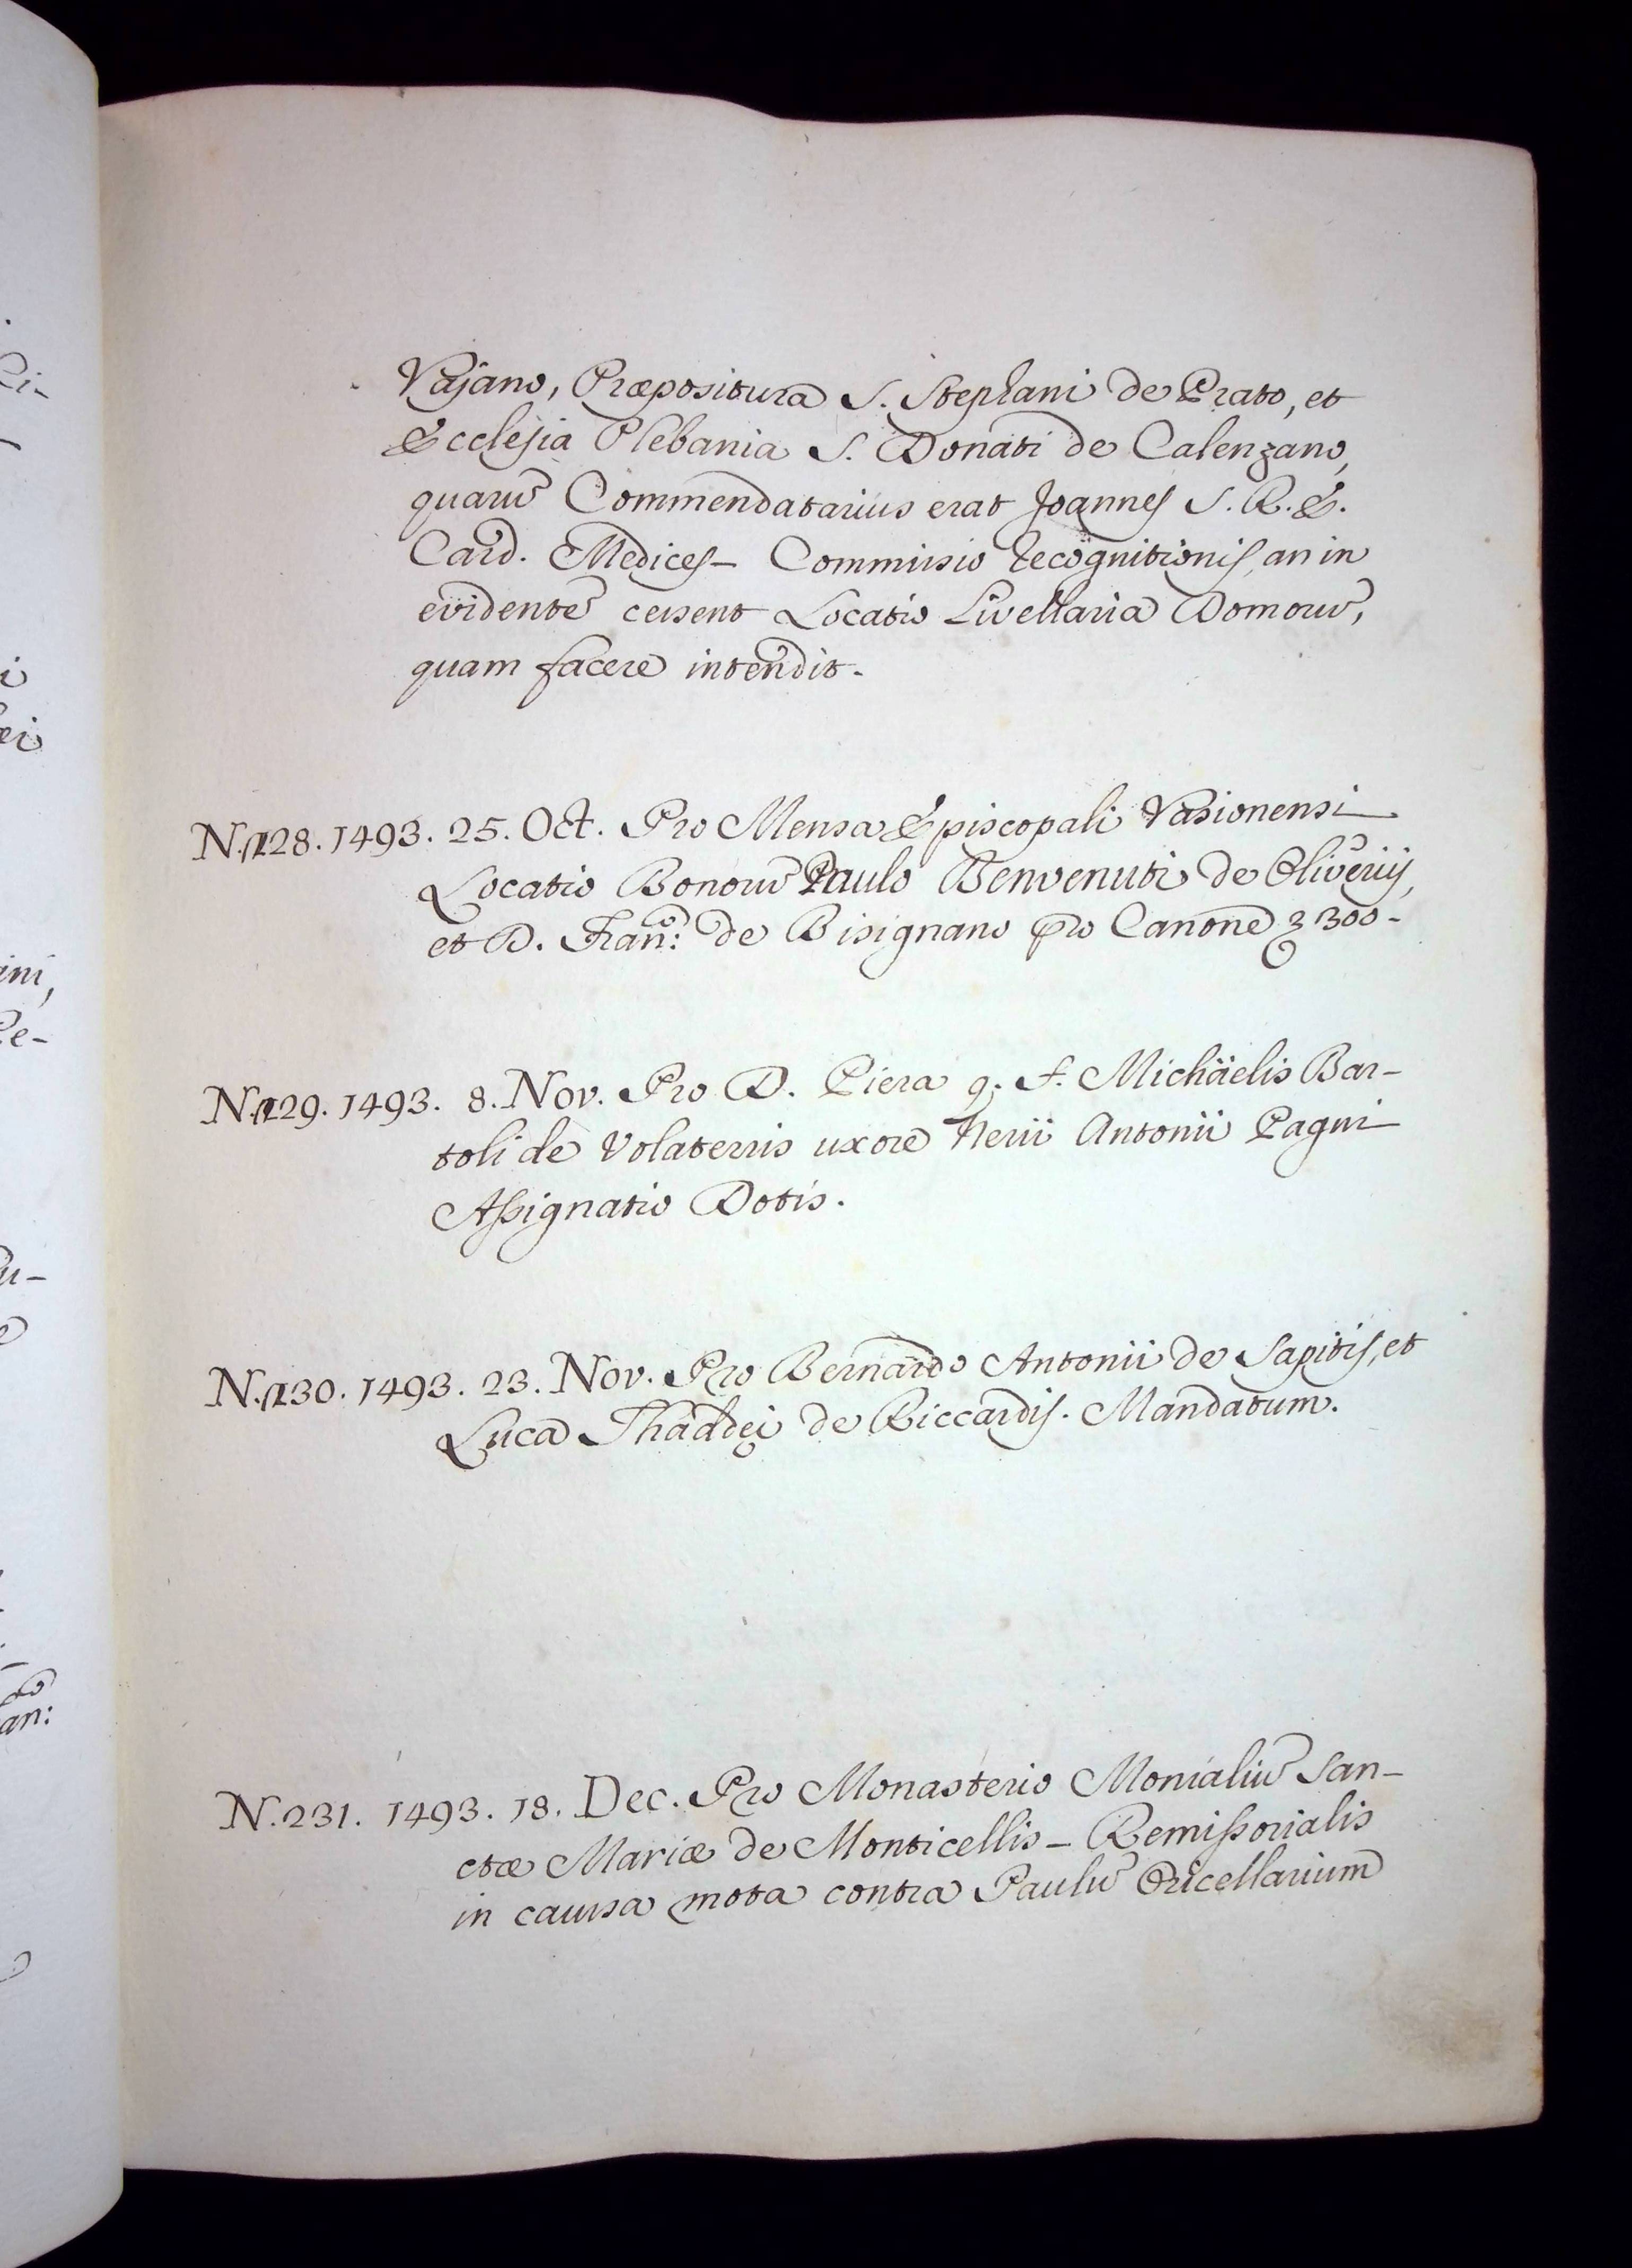 Vajano, Præpositura S. Stephani de Prato, et
Ecclesia Plebania S. Donati de Calenzano,
quarũ Commendatarius erat Joannes S. R. E.
Card. Medices – Commissio recognitionis, an in
evidentẽ ceisent Locatio Livellaria Domorũ,
quam facere intendit.
N. 228. 1493. 25. Oct. Pro Mensa Episcopali Vasionensi
Locatio Bonorũ Paulo Benvenuti de Oliverijs,
et D. Fran:co de Bisignano pro Canone 300 -
N. 229. 1493. 8. Nov. Pro D. Piera q. f. Michäelis Bar-
toli de Volaterris uxore Nerii Antonii Pagni
Assignatio Dotis.
N. 230. 1493. 23. Nov. Pro Bernardo Antonii de Sapitis, et
Luca Thaddęi de Riccardis. Mandatum.
N. 231. 1493. 18. Dec. Pro Monasterio Monialiũ San-
ctæ Mariæ de Monticellis – Remissorialis
in caussa mota contra Paulũ Oricellarium